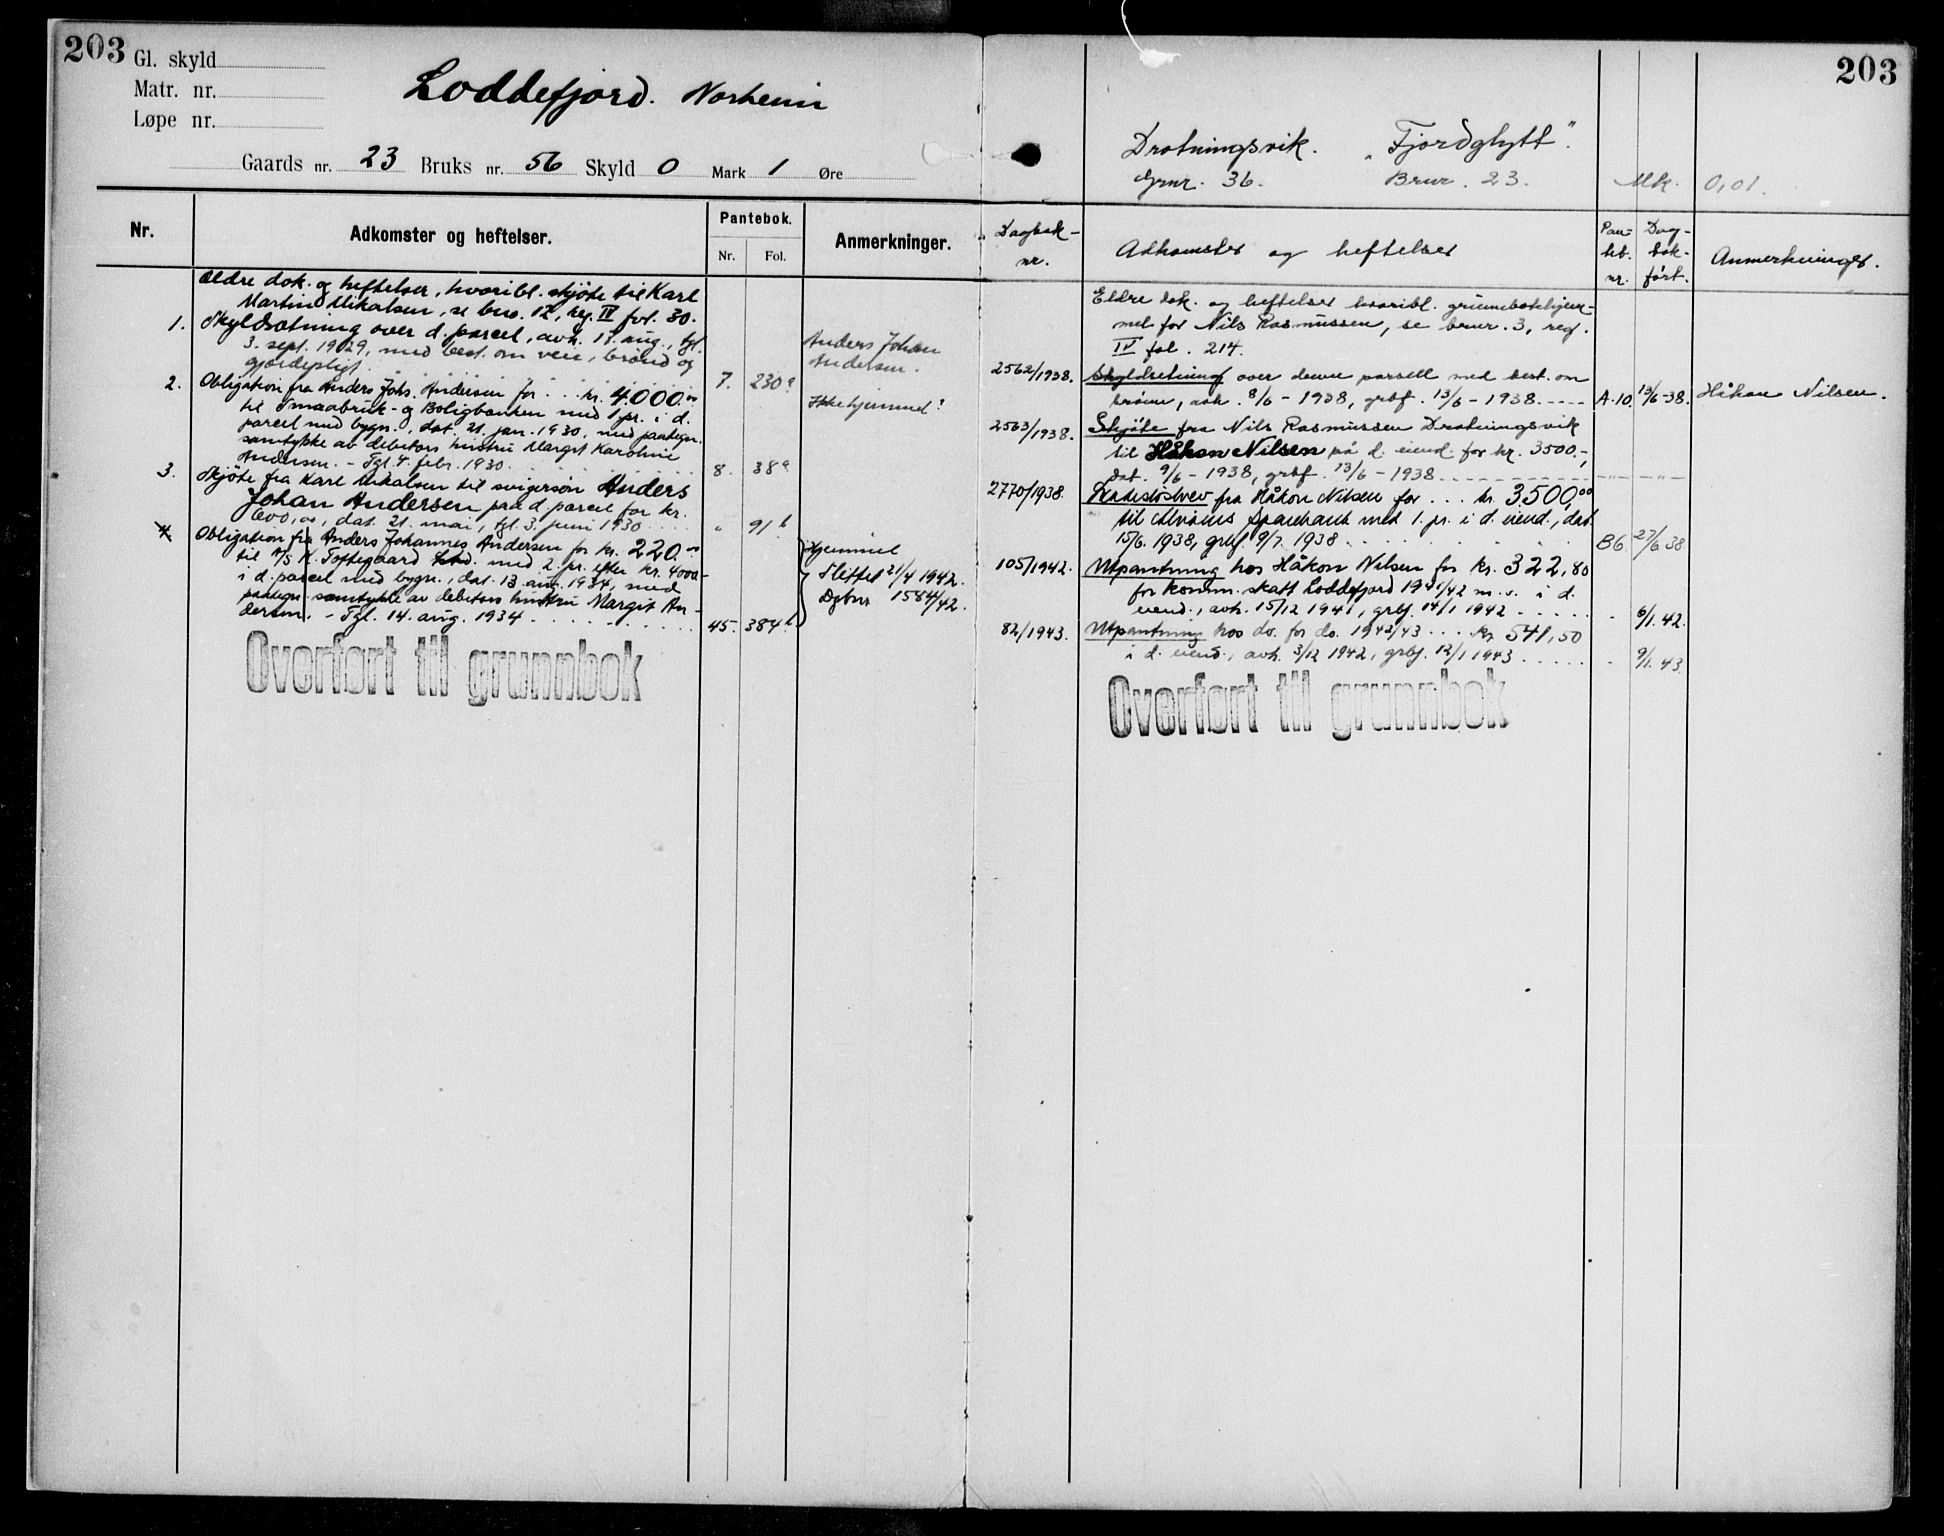 203
Gl. skyld
Matr. nr.
Løpe nr.
Loddefjord. Norheim
Gaards nr. 23 Bruks nr. 56 Skyld 0 Mark 1 Øre
Nr.
Adkomster og heftelser.
Pantebok.
Nr. Fol.
Anmerkninger.
Ældre dok. og heftelser, hvoribl. skjøte til Karl
Martin Mikalsen, se bno. 12, reg. IV fol. 30.
1. Skyldsætning over d. parcel, avh. 17. aug., tgl.
3. sept. 1929, med best. om vei, brønd og
gjærdepligt. 7. 230a
Anders Johan
Andersen.
2. Obligation fra Anders Johs. Andersen for ... kr. 4.000.00
til Smaabruk- og Boligbanken med 1. pr. i d.
parcel med bygn., dat. 21. jan. 1930, med paategn.
samtykke av debitors hustru Margit Karoline
Andersen. - Tgl. 4. febr. 1930. 8. 38a
Ikke hjemmel!
3. Skjøte fra Karl Mikalsen til svigersøn Anders
Johan Andersen paa d. parcel for kr.
600,00, dat. 21. mai, tgl. 3. juni 1930 " 91b
4. Obligation fra Anders Johannes Andersen for kr. 220.00
til A/S K. Toftegaard med 2. pr. efter kr. 4000.-
i d. parcel med bygn., dat. 13 aug. 1934, med
paategn. samtykke av debitors hustru Margit An-
dersen. - Tgl. 14. aug. 1934 45. 384b
Hjemmel
Slettet 21/4 1942.
Dgbnr 1584/42.
Overført til grunnbok
203
Drotningsvik. „Fjordglytt".
Grnr. 36. Brnr. 23. Mk. 0,01.
Dagbok-
nr.
Adkomster og heftelser
Pan-
teb.
nr.
Dag-
bok-
ført.
Anmerkninger.
Eldre dok. og heftelser hvoribl. grunnbokshjem-
mel for Nils Rasmussen, se brnr. 3, reg.
IV fol. 214.
2562/1938. Skyldsetning over denne parsell med best. om
brønn, avh. 8/6 - 1938, grbf. 13/6 - 1938 A.10. 13/6-38. Håkon Nilsen.
2563/1938. Skjøte fra Nils Rasmussen Drotningsvik
til Håkon Nilsen på d. eiend. for kr. 3500.-,
dat. 9/6 - 1938, grbf. 13/6 - 1938
2770/1938. Skadesløsbrev fra Håkon Nilsen for ... kr. 3.500,00
til Alvøens Sparebank med 1. pr. i d. eiend., dat.
15/6. 1938, grbf. 9/7. 1938 B6. 27/6.38
105/1942. Utpantning hos Håkon Nilsen for kr. 322,80
for komm. skatt Loddefjord 1941/42 m. v. i d.
eiend., avh. 15/12 1941, grbf. 14/1 1942 " 6/1. 42.
82/1943. Utpantning hos do. for do. 1942/43 ... kr 541,50
i d. eiend., avh. 3/12 1942, grbf. 12/1 1943 " 9/1. 43.
Overført til grunnbok